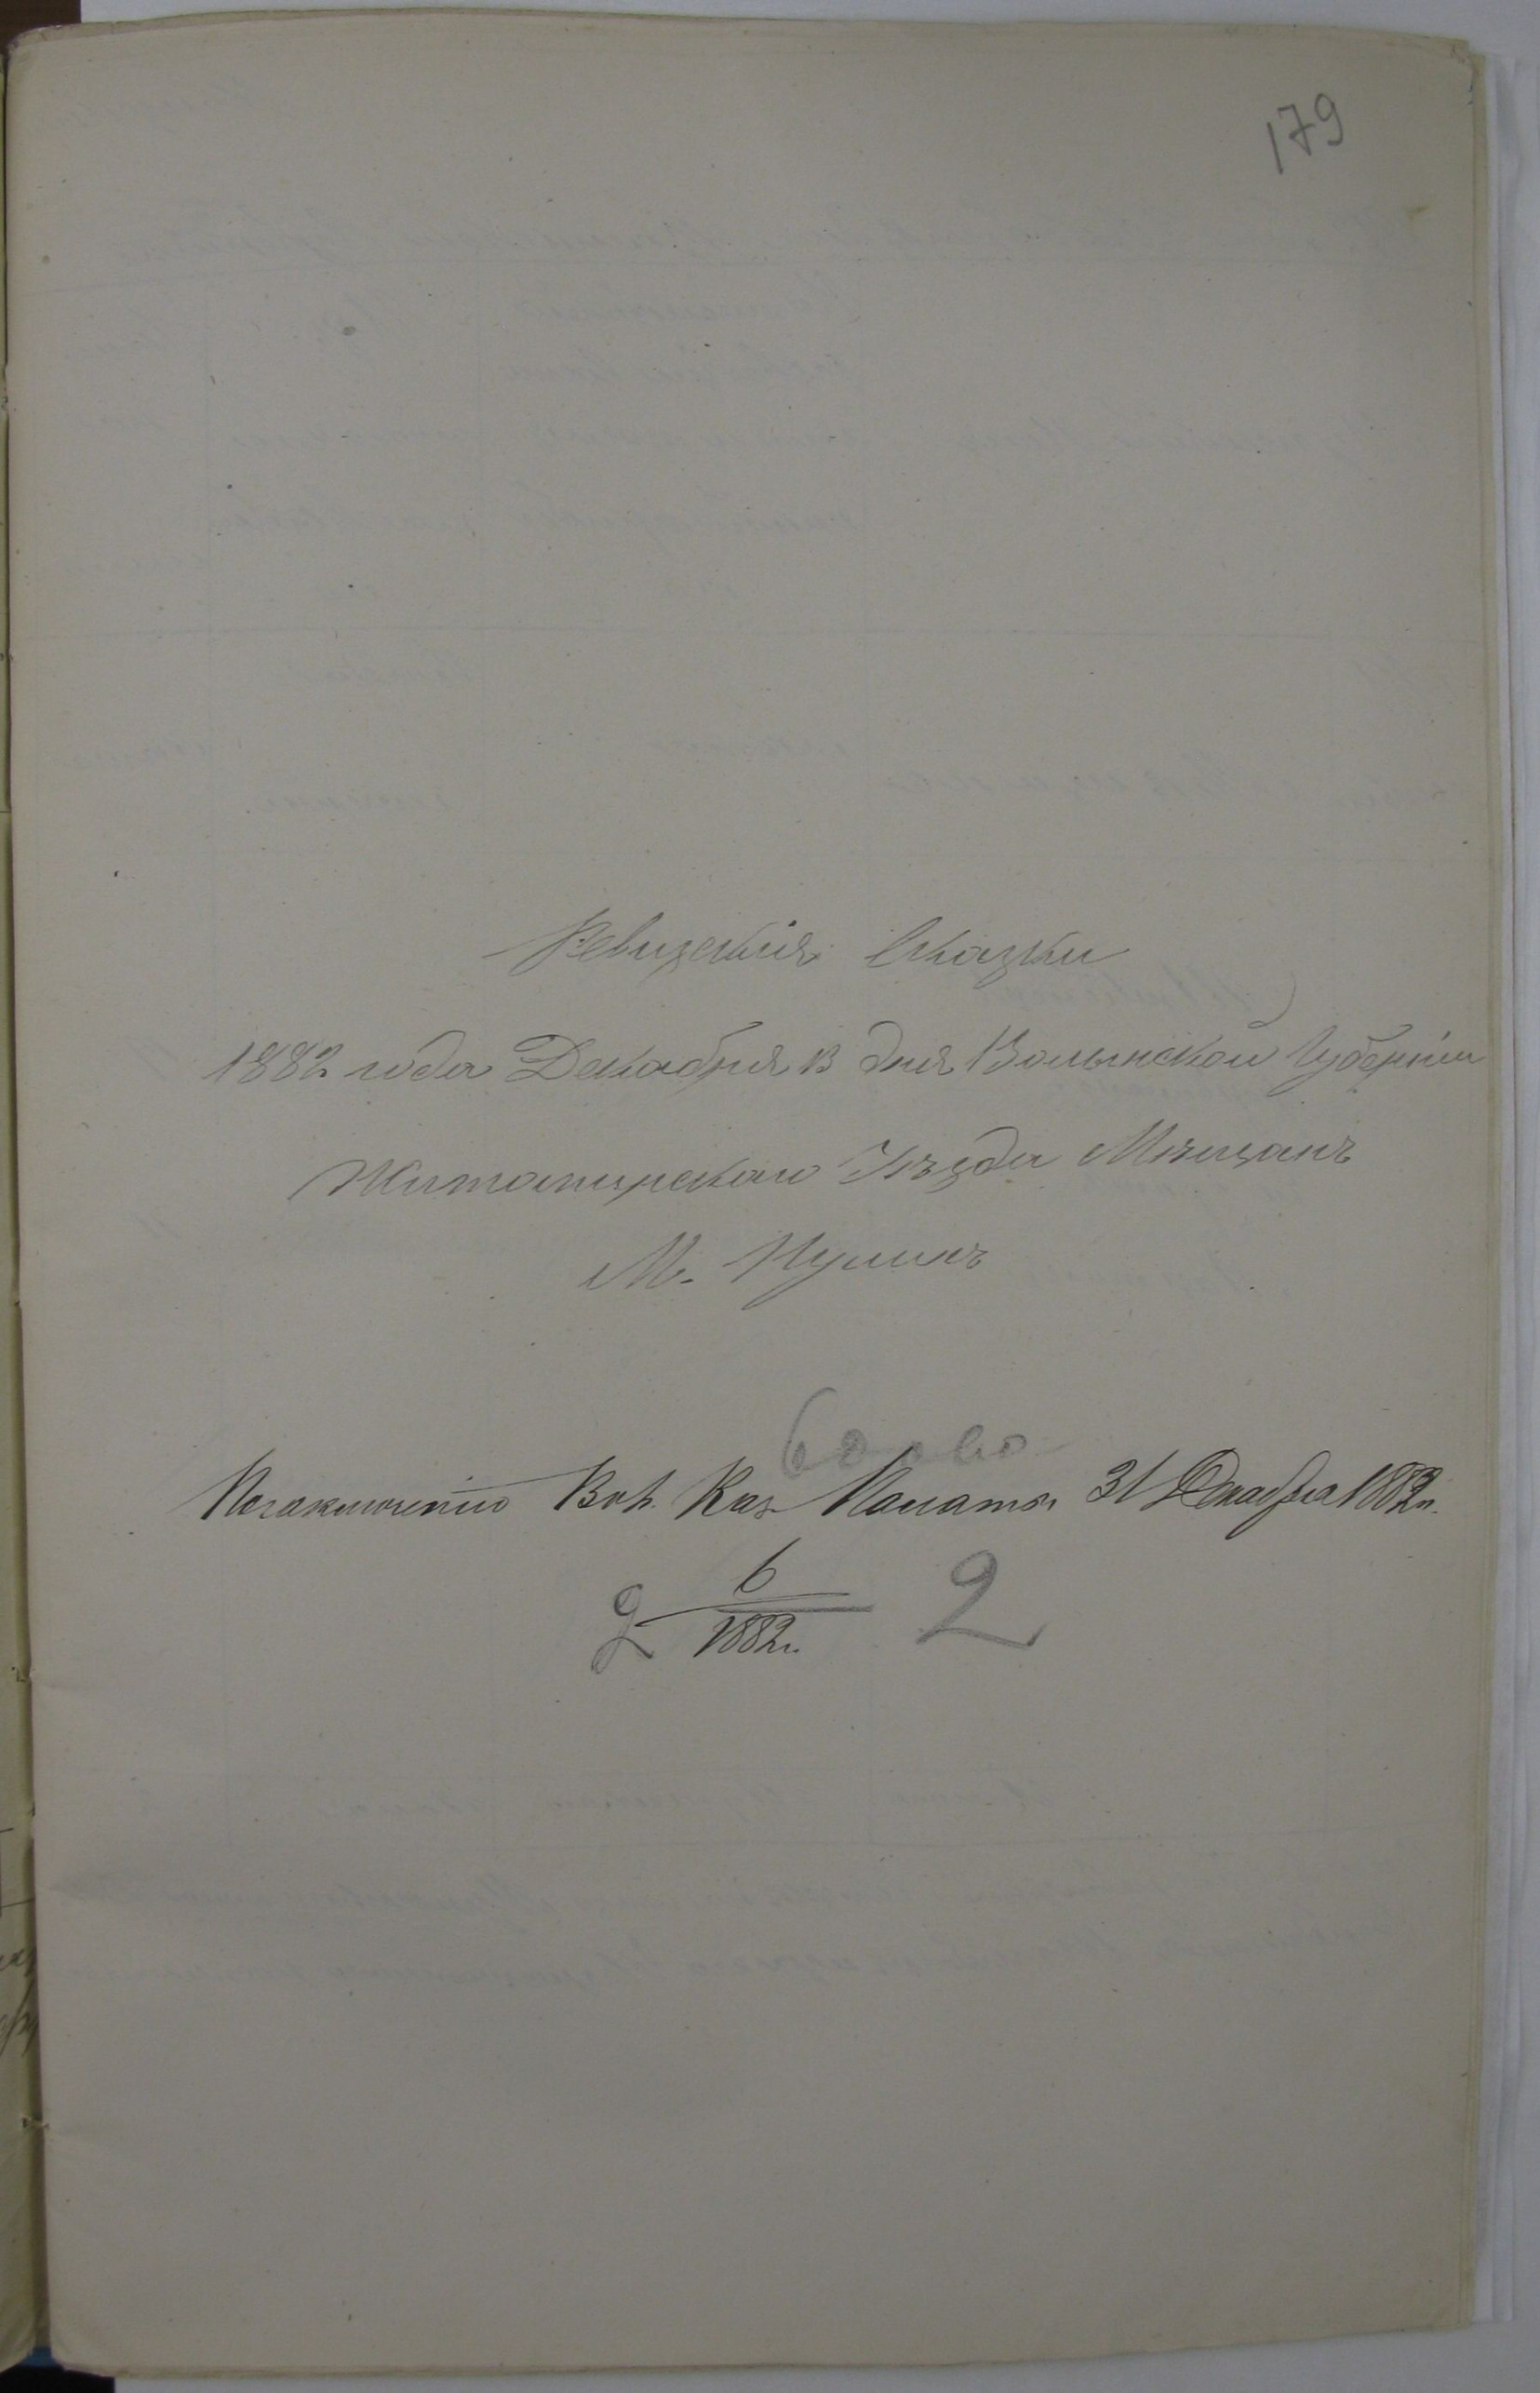 179
Ревизскія Сказки
1882 года Декабря 13 дня Волынской Губерніи
Житомирскаго Уѣзда Мѣщанъ
М. Пулинъ
По заключенію Вол. Каз. Палаты 31 Декабря 1882 г.
2 6 2
1882 г.